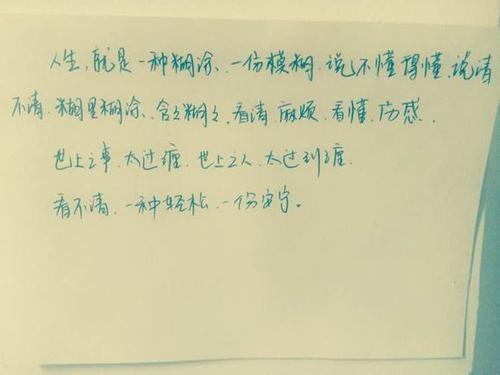 人生,就是一种糊涂、一份模糊.说不懂得懂,说清
不清.糊里糊涂、含含糊糊.看清,麻烦.看懂,伤感.
世上之事.太过 世上之人.太过
看不清、一种轻松.一份安宁。